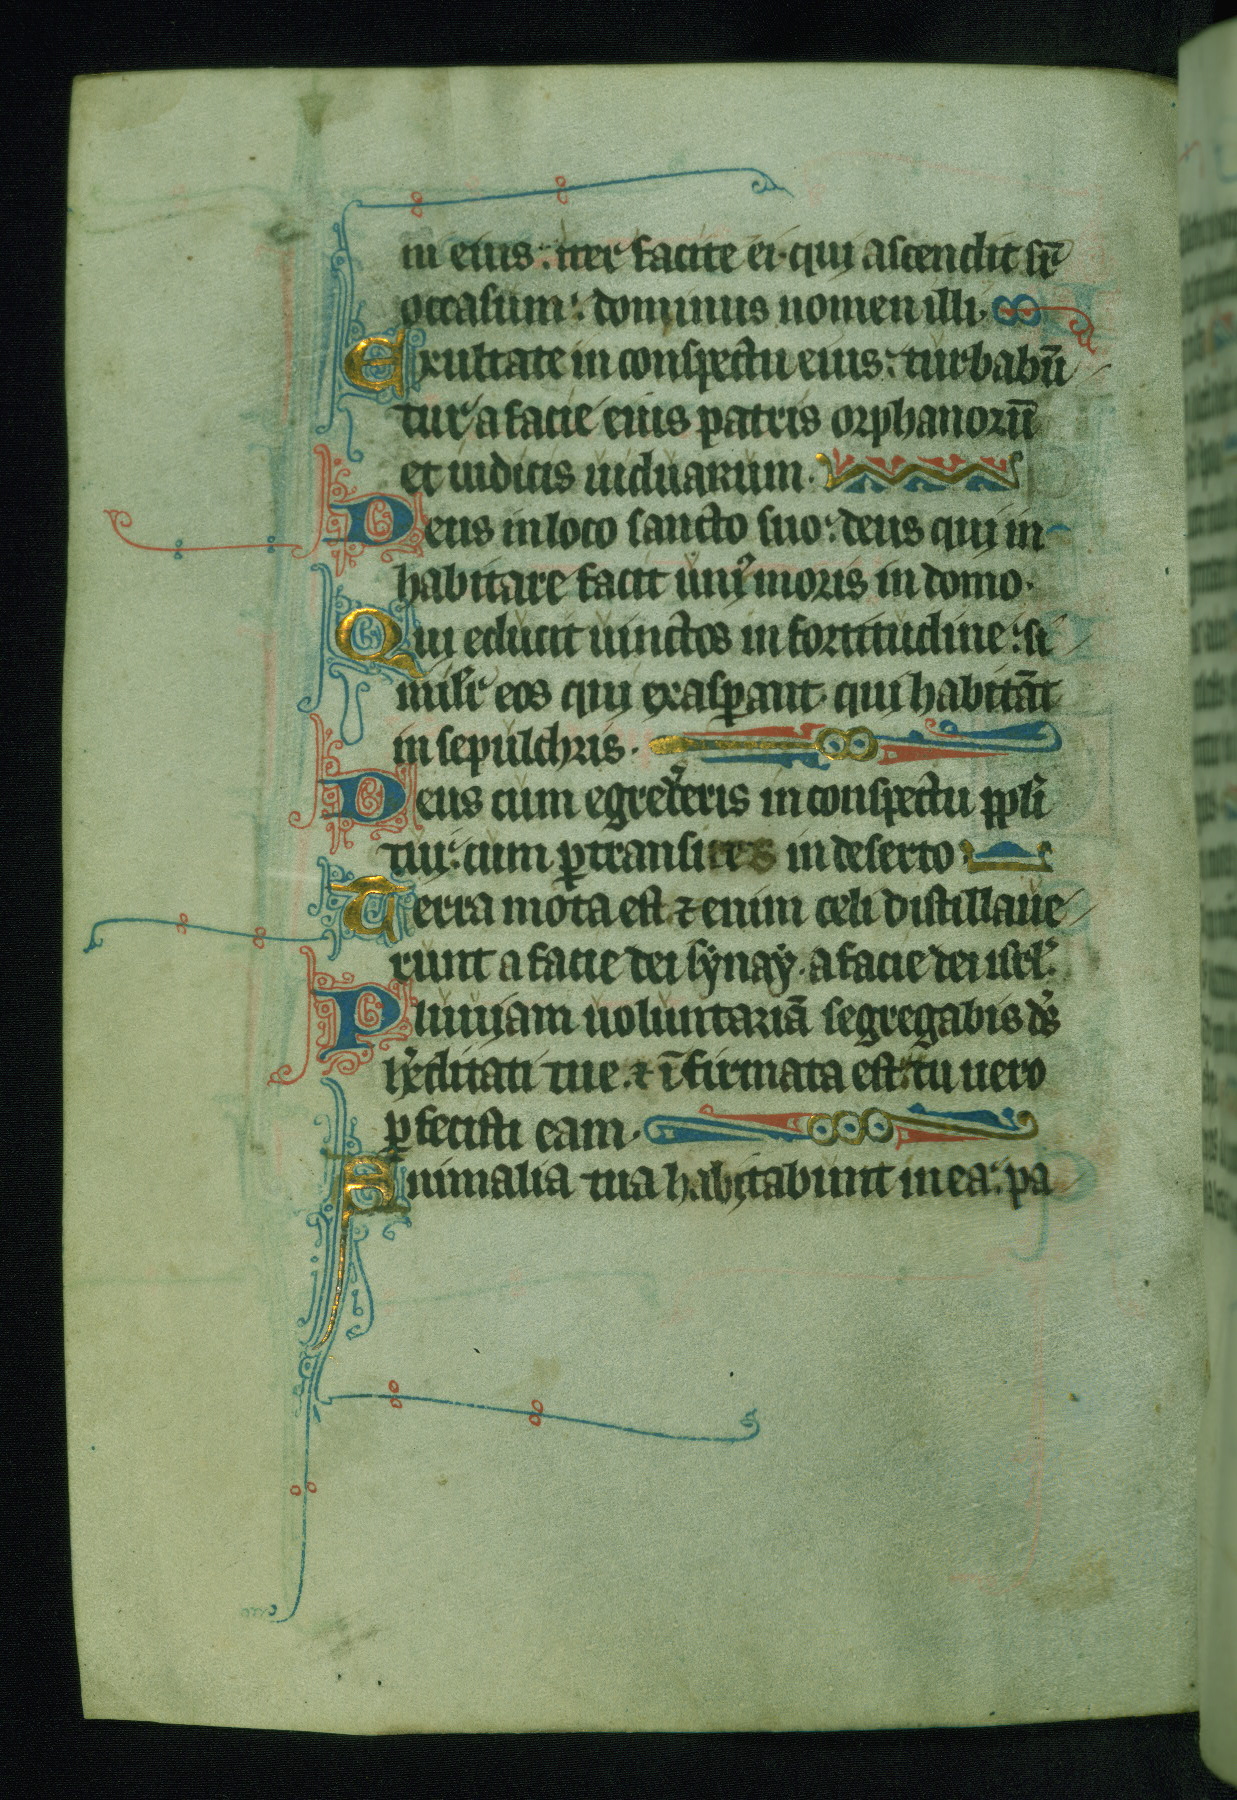 ni eius: iter facite ei· qui ascendit sr̄
occasum: dominus nomen illi·
Exultate in conspectu eius: turbabū
tur a facie eius patris orphanorū
et iudicis uiduarum·
Deus in loco sancto suo: deus qui in
habitare facit uniꝰ moris in domo·
Qui educit uinctos in fortitudine: si
milr̄ eos qui exasꝑant· qui habitāt
in sepulchris·
Deus cum egredẽris in conspectu ppli
tui: cum ꝑtransires in deserto
Terra mota est ⁊ enim celi distillaue
runt a facie dei sẏnaẏ· a facie dei isrl'·
Pluuiam uoluntariā segregabis dꝰs
hẽditati tue· ⁊ īfirmata est: tu uero
ꝑfecisti eam·
Animalia tua habitabunt in ea: pa